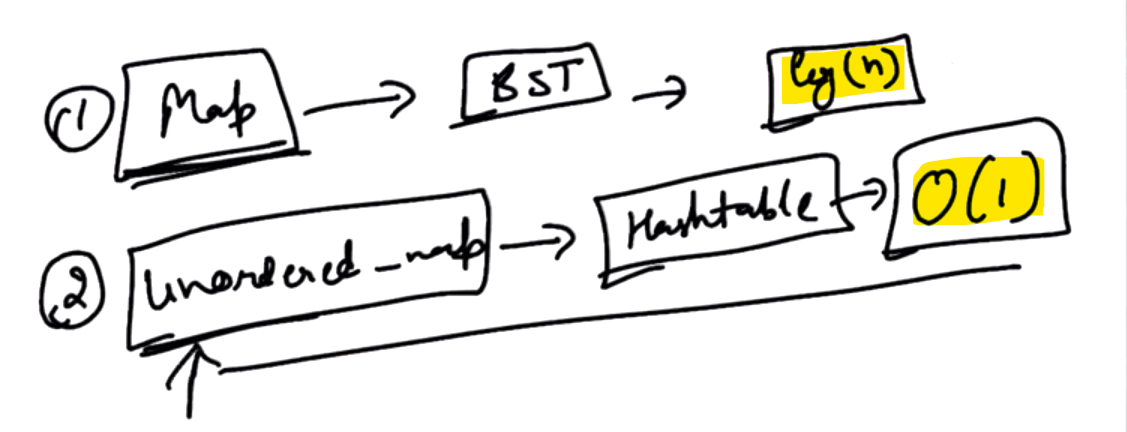 1 Map → BST → log(n)
2 Unordered_map → Hashtable → O(1)